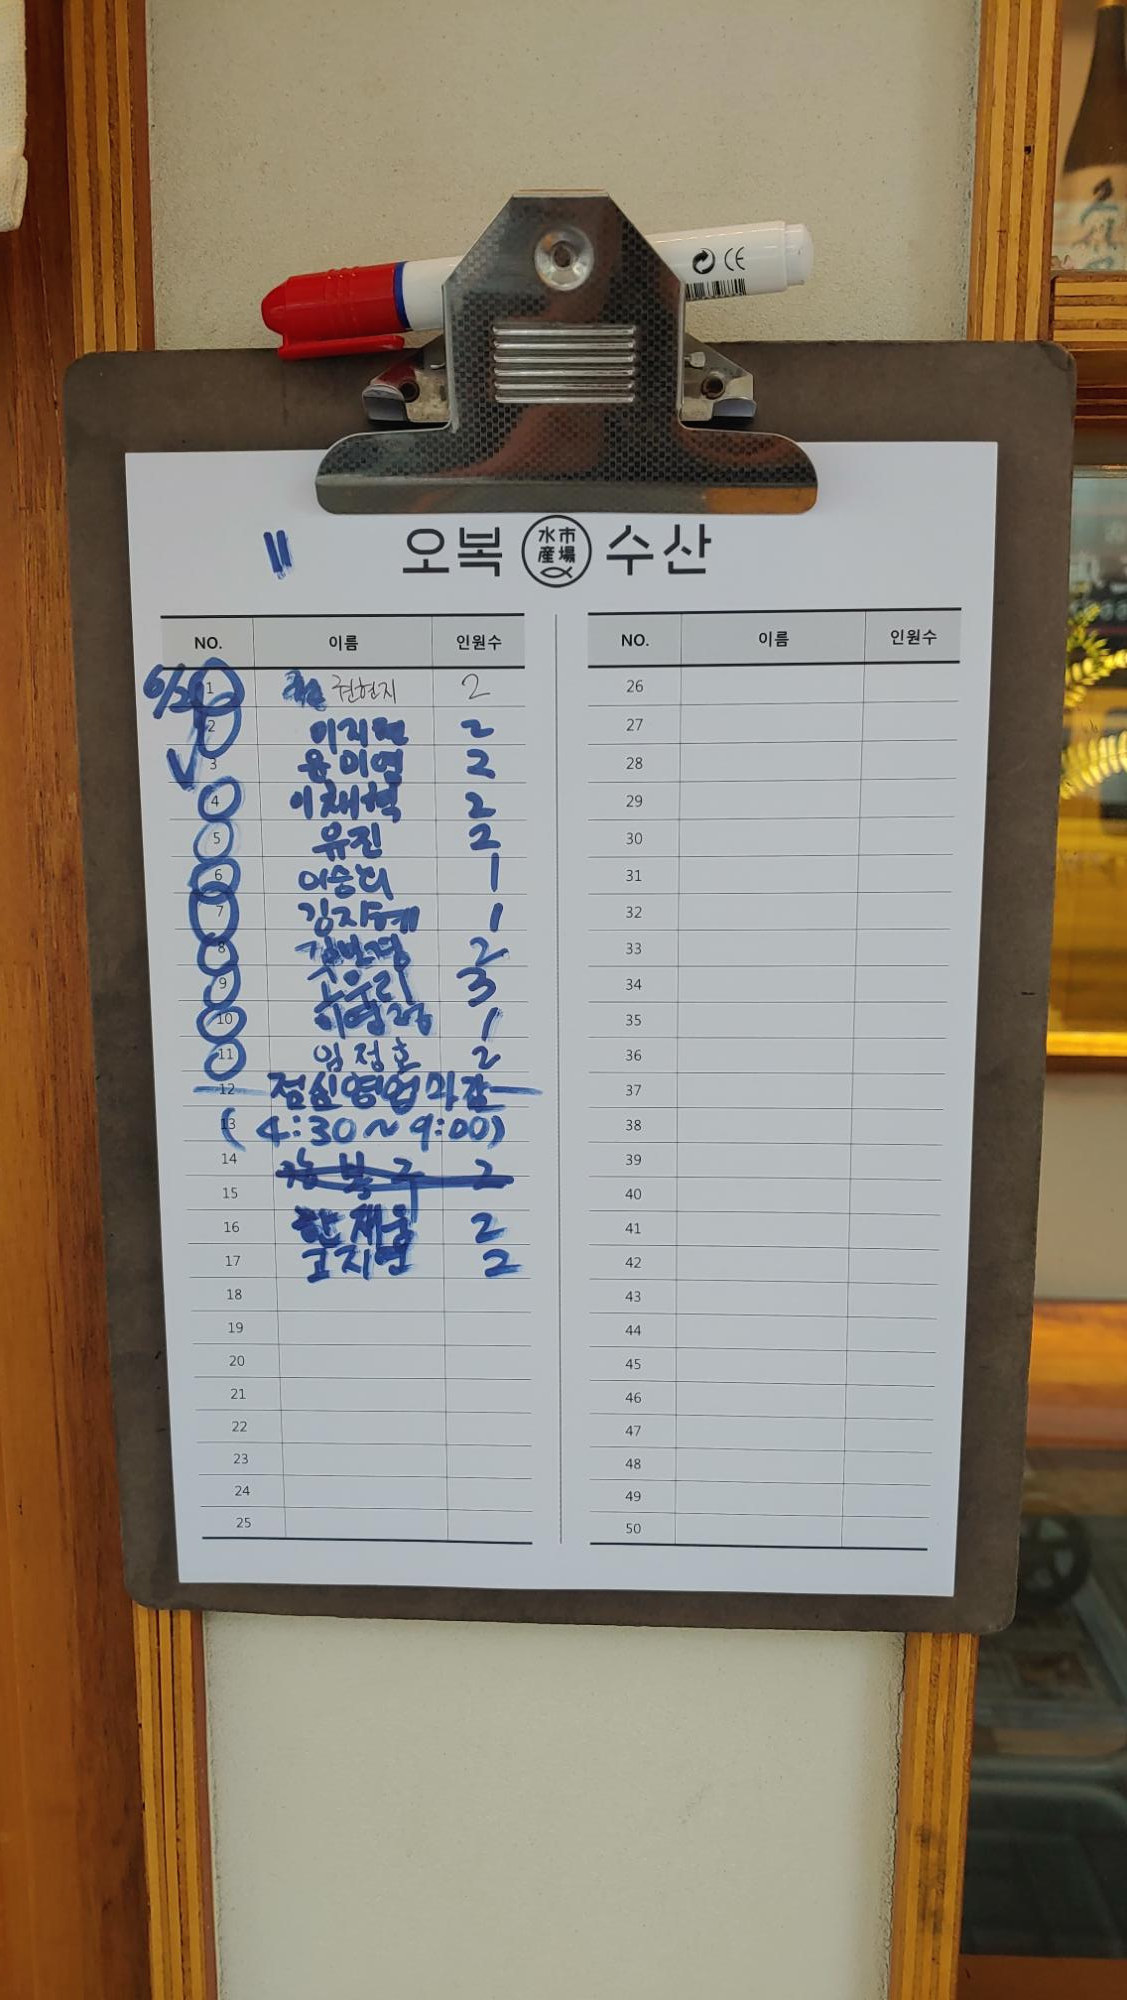 CE
오복 水産市場 수산
NO. 이름 인원수
1 권현지 2
2 이지현 2
3 윤미연 2
4 이채혁 2
5 유진 2
6 이승희 1
7 김지혜 1
8 2
9 3
10 1
11 임정호 2
12 점심영업마감
13 (4:30~9:00)
14 2
15
16 한재웅 2
17 고지연 2
18
19
20
21
22
23
24
25
NO. 이름 인원수
26
27
28
29
30
31
32
33
34
35
36
37
38
39
40
41
42
43
44
45
46
47
48
49
50